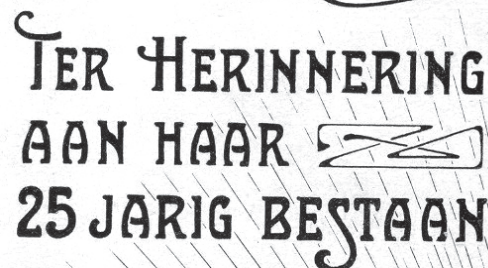 TER HERINNERING
AAN HAAR
25 JARIG BESTAAN